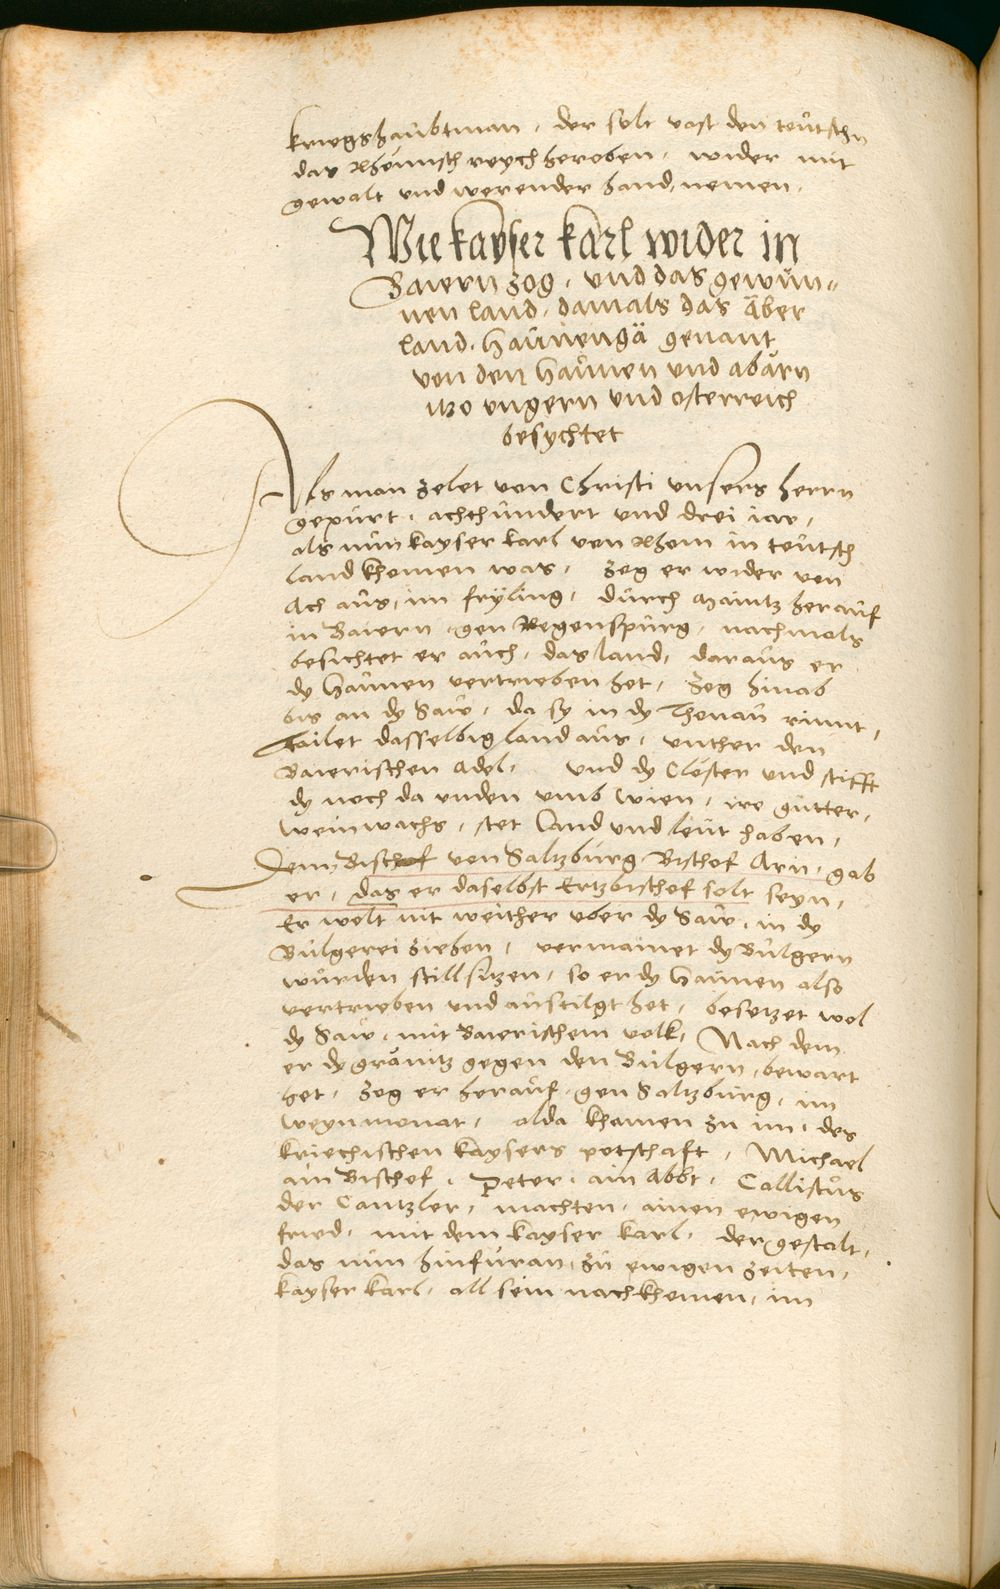 kriegshaůbtman, der solt vast den teůtschn
das Rhömisch reych heroben, wider mit
gewalt und werender hand, nemen.
Wie kayser karl wider in
Baiern zog, und das gewůn=
nen land, damals das aber
land, Haůnengä genant
von den Haůnen und abärn
itzo ungern und osterreich
besychtet
Als man zelet von Christi unsers herrn
gepůrt, achthůndert und drei iar,
als nůn kayser karl von Rhom in teůtsch
land khomen was, zog er wider von
Ach aůs, im fryling, důrch Maintz heraůf
in Baiern gen Regenspůrg, nachmals
besichtet er aůch, das land, daraůs er
dy Haůnen vertrieben het, zog hinab
bis an dy Saw, da sy in dy Thonaů rinnt,
tailet dasselbig land aůs, unther den
Baierischen adel, und dy Clöster und stifft
dy noch da unden umb Wien, ire gůtter,
weinwachs, stet land und leůt haben,
Dem Bischof von Saltzbůrg Bischof Arn, gab
er, das er daselbst Ertzbischof solt seyn,
Er wolt nit weither uber dy Saw, in dy
Bůlgerei ziehen, vermainet dy Bůlgern
wůrden still sitzen, so er dy Haůnen also
vertrieben und aůstilgt het, besetzet wol
dy Saw, mit Baierischem volk, Nach dem
er dy gränitz gegen den Bůlgern, bewart
het, zog er heraůf, gen Saltzbůrg, im
weynmonat, alda khamen zu im, des
kriechischen kaysers potschaft, Michael
ain Bischof, Peter, ain Abbt, Callistůs
der Cantzler, machten, ainen ewigen
fried, mit dem kayser karl, der gestalt,
das nůn hinfůran, zů ewigen zeiten,
kayser karl, all sein nachkhomen, im